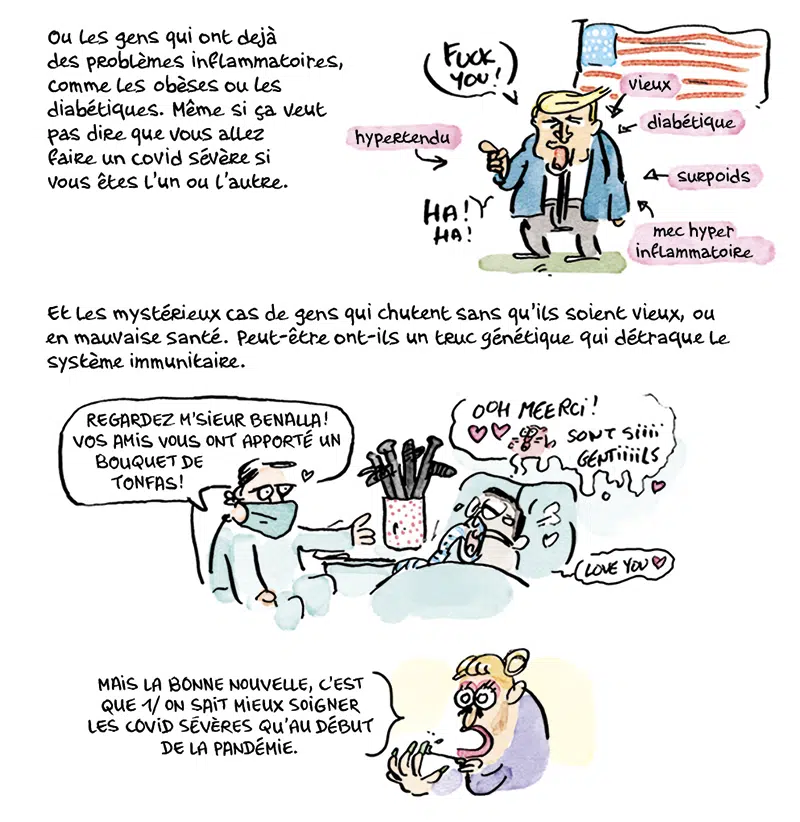 Ou les gens qui ont dejà
des problèmes inflammatoires,
comme les obèses ou les
diabétiques. Même si ça veut
pas dire que vous allez
faire un covid sévère si
vous êtes l'un ou l'autre.
FUCK
YOU!
vieux
diabétique
hypertendu
surpoids
HA!
HA!
mec hyper
inflammatoire
Et les mystérieux cas de gens qui chutent sans qu'ils soient vieux, ou
en mauvaise santé. Peut-être ont-ils un truc génétique qui détraque le
système immunitaire.
REGARDEZ M'SIEUR BENALLA!
VOS AMIS VOUS ONT APPORTÉ UN
BOUQUET DE
TONFAS!
OOH MEERCI!
SONT SIIII
GENTIIIILS
LOVE YOU
MAIS LA BONNE NOUVELLE, C'EST
QUE 1/ ON SAIT MIEUX SOIGNER
LES COVID SÉVÈRES QU'AU DÉBUT
DE LA PANDÉMIE.